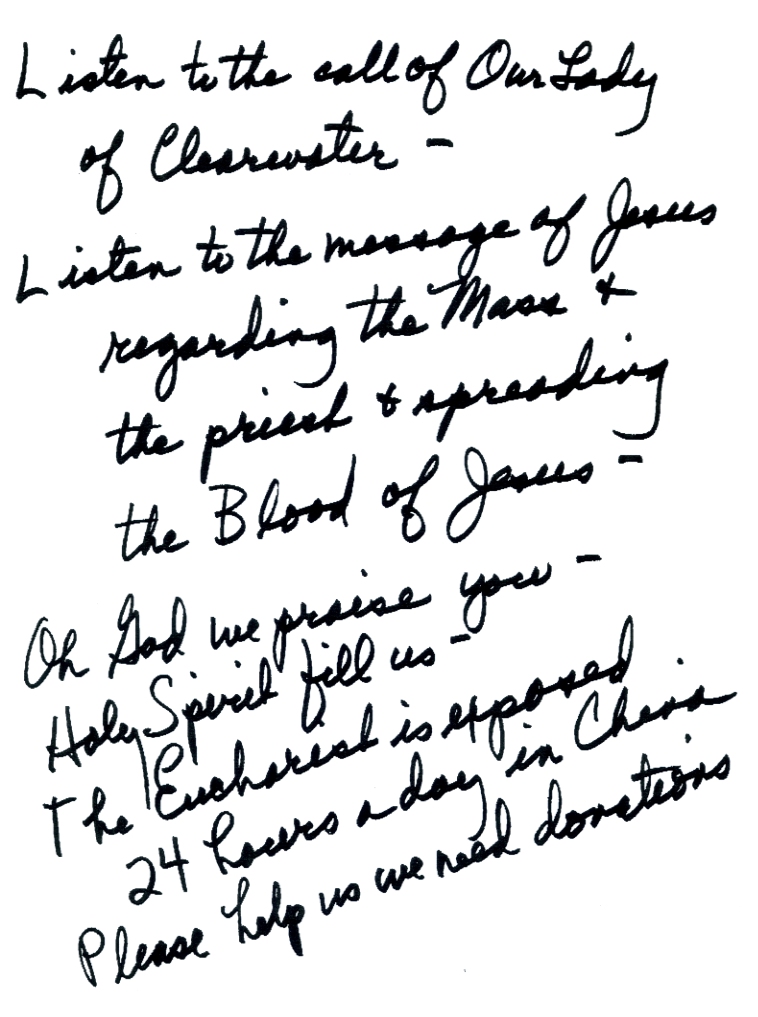 Listen to the call of Our Lady
of Clearwater -
Listen to the message of Jesus
regarding the Mass &
the priest & spreading
the Blood of Jesus -
Oh God we praise you -
Holy Spirit fill us -
The Eucharist is exposed
24 hours a day in China
Please help us we need donations